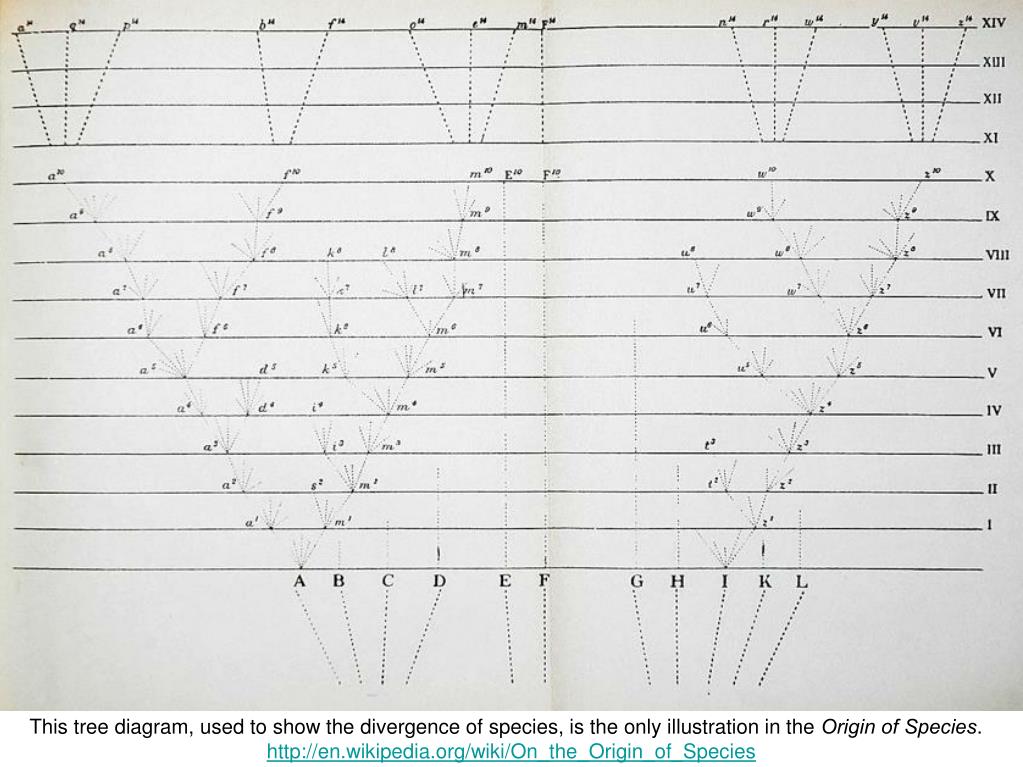 a¹⁴ q¹⁴ p¹⁴ b¹⁴ f¹⁴ o¹⁴ e¹⁴ m¹⁴ F¹⁴ n¹⁴ r¹⁴ w¹⁴ y¹⁴ v¹⁴ z¹⁴ XIV
XIII
XII
XI
a¹⁰ f¹⁰ m¹⁰ E¹⁰ F¹⁰ w¹⁰ z¹⁰ X
a⁹ f⁹ m⁹ w⁹ z⁹ IX
a⁸ f⁸ k⁸ l⁸ m⁸ u⁸ w⁸ z⁸ VIII
a⁷ f⁷ l⁷ m⁷ u⁷ w⁷ z⁷ VII
a⁶ f⁶ k⁶ m⁶ u⁶ z⁶ VI
a⁵ d⁵ k⁵ m⁵ u⁵ z⁵ V
a⁴ d⁴ i⁴ m⁴ z⁴ IV
a³ i³ m³ t³ z³ III
a² s² m² t² z² II
a¹ m¹ z¹ I
A B C D E F G H I K L
This tree diagram, used to show the divergence of species, is the only illustration in the Origin of Species.
http://en.wikipedia.org/wiki/On_the_Origin_of_Species